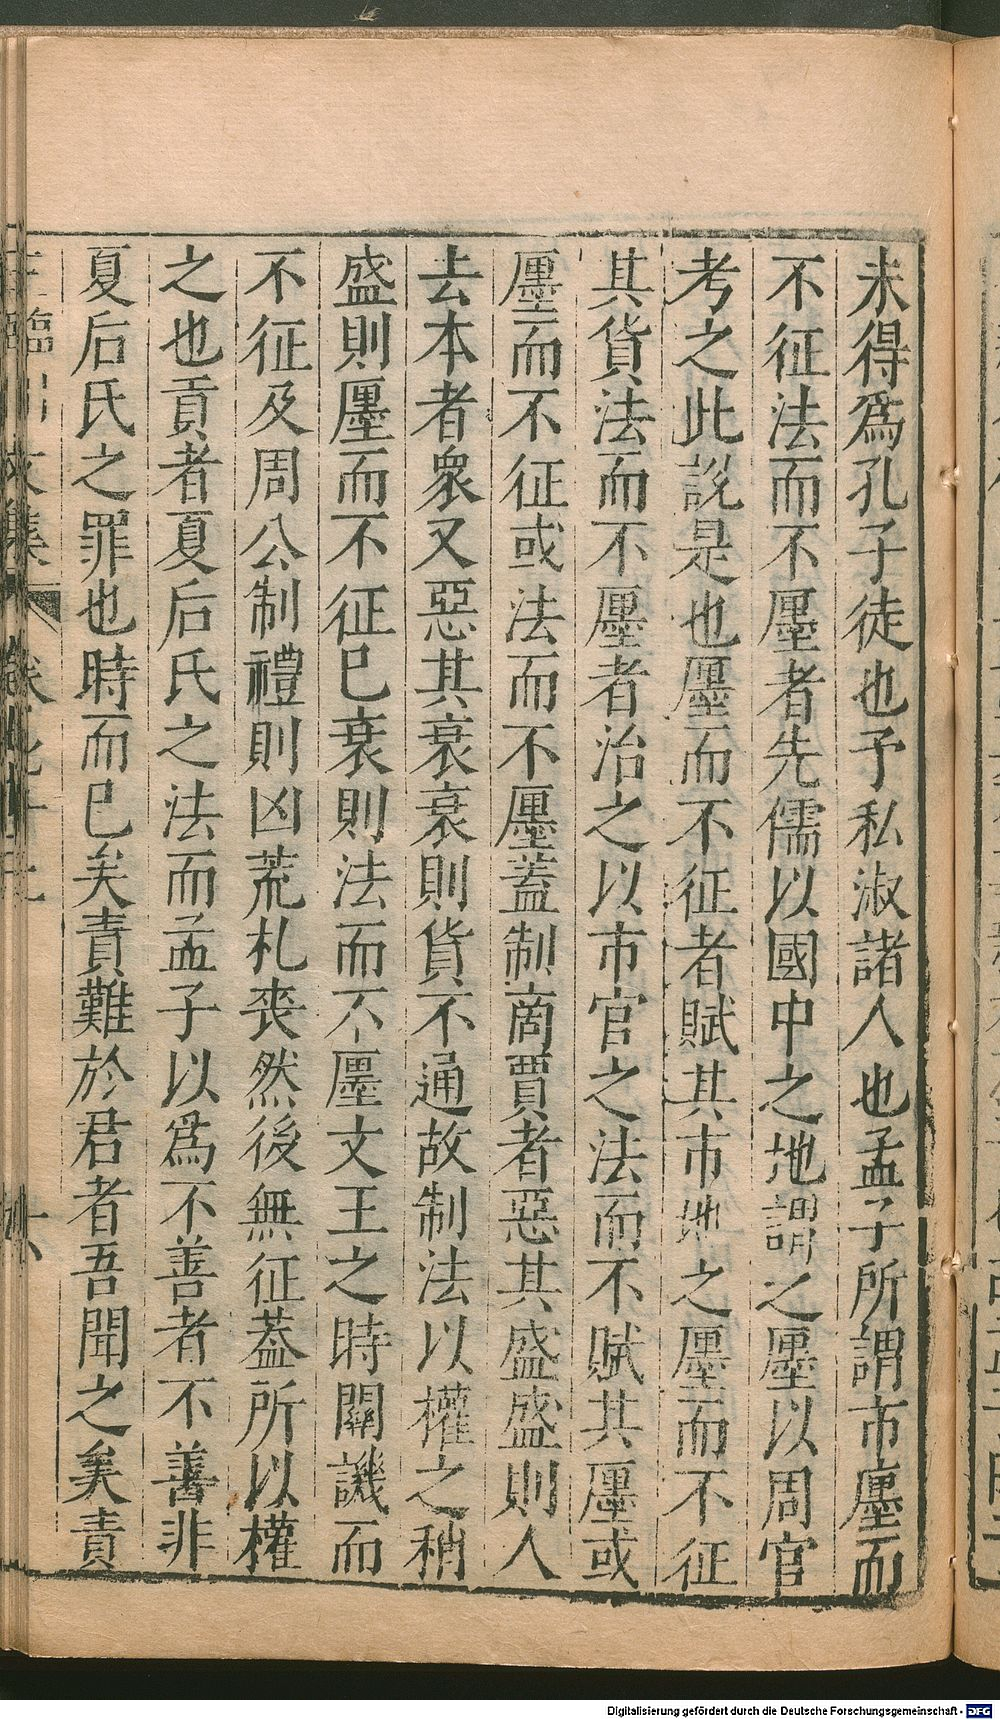 未得爲孔子徒也予私淑諸人也孟子所謂市廛而
不征法而不廛者先儒以國中之地謂之廛以周官
考之此説是也廛而不征者賦其市地之廛而不征
其貨法而不廛者治之以市官之法而不賦其廛或
廛而不征或法而不廛蓋制商賈者惡其盛盛則人
去本者衆又惡其衰衰則貨不通故制法以權之稍
盛則廛而不征巳衰則法而不廛文王之時關譏而
不征及周公制禮則凶荒札喪然後無征葢所以權
之也貢者夏后氏之法而孟子以爲不善者不善非
夏后氏之罪也時而巳矣責難於君者吾聞之矣責
臨川文集
Digitalisierung gefördert durch die Deutsche Forschungsgemeinschaft - DFG